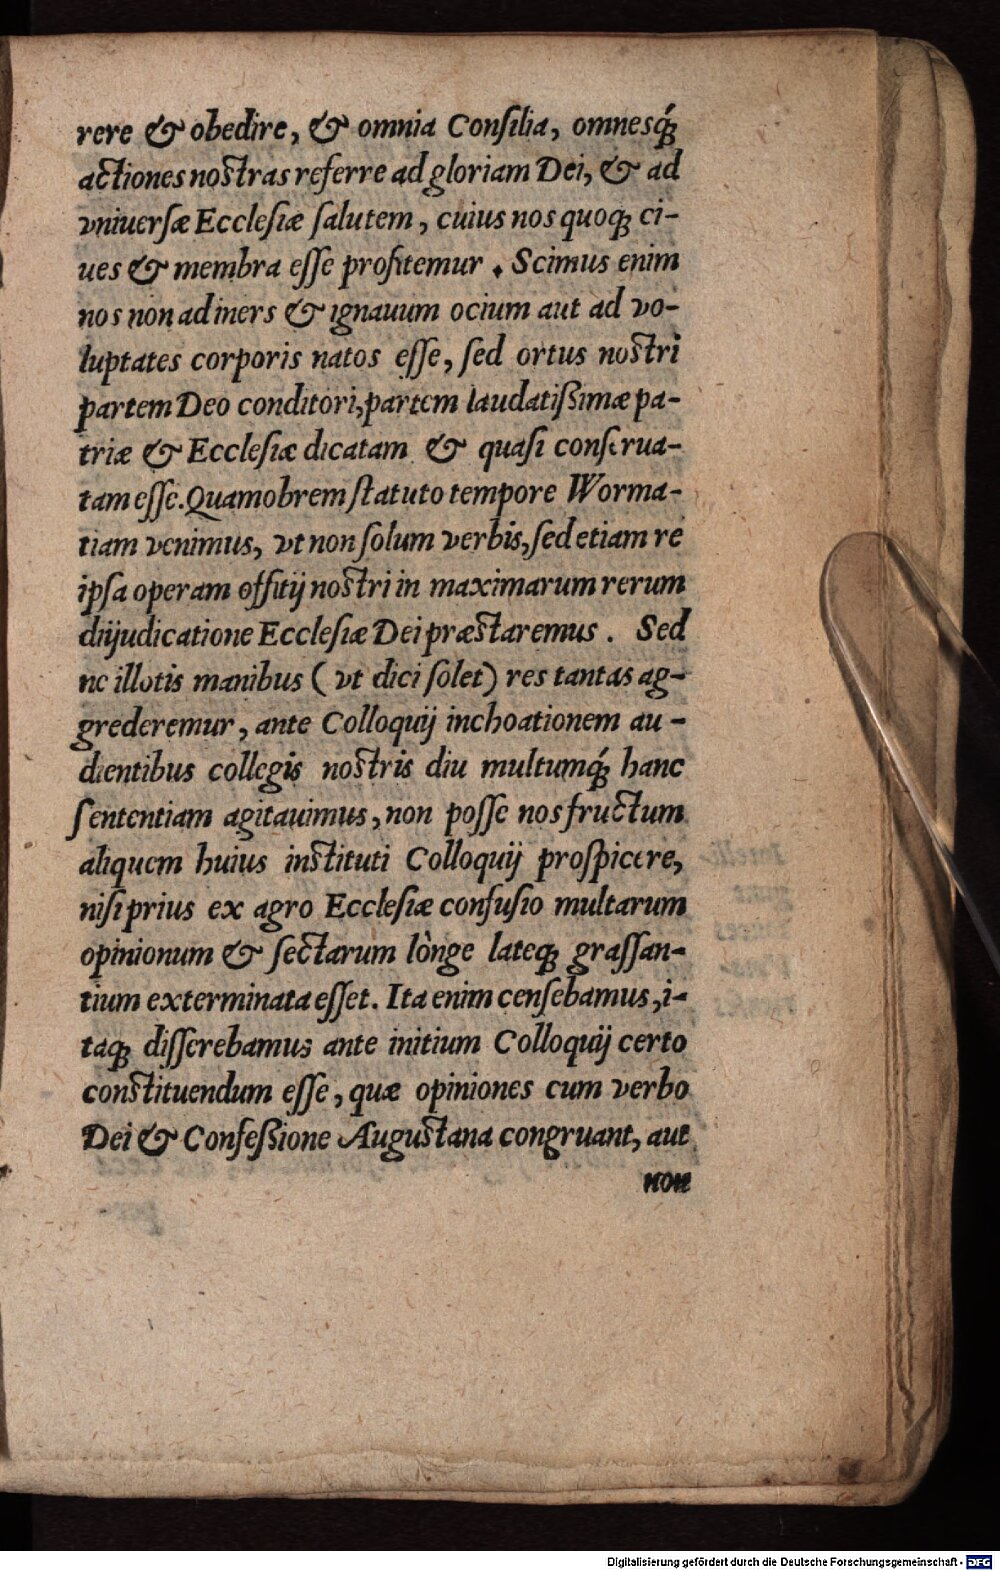 rere & obedire, & omnia Consilia, omnesq́;
actiones nostras referre ad gloriam Dei, & ad
vniuersæ Ecclesiæ salutem, cuius nos quoq; ci-
ues & membra esse profitemur. Scimus enim
nos non ad iners & ignauum ocium aut ad vo-
luptates corporis natos esse, sed ortus nostri
partem Deo conditori, partem laudatißimæ pa-
triæ & Ecclesiæ dicatam & quasi conserua-
tam esse. Quamobrem statuto tempore Worma-
tiam venimus, vt non solum verbis, sed etiam re
ipsa operam offitij nostri in maximarum rerum
diijudicatione Ecclesiæ Dei præstaremus. Sed
ne illotis manibus (vt dici solet) res tantas ag-
grederemur, ante Colloquij inchoationem au-
dientibus collegis nostris diu multumq́; hanc
sententiam agitauimus, non posse nos fructum
aliquem huius instituti Colloquij prospicere,
nisi prius ex agro Ecclesiæ confusio multarum
opinionum & sectarum lònge lateq; grassan-
tium exterminata esset. Ita enim censebamus, i-
taq; disserebamus ante initium Colloquij certo
constituendum esse, quæ opiniones cum verbo
Dei & Confeßione Augustana congruant, aut
non
Digitalisierung gefördert durch die Deutsche Forschungsgemeinschaft - DFG